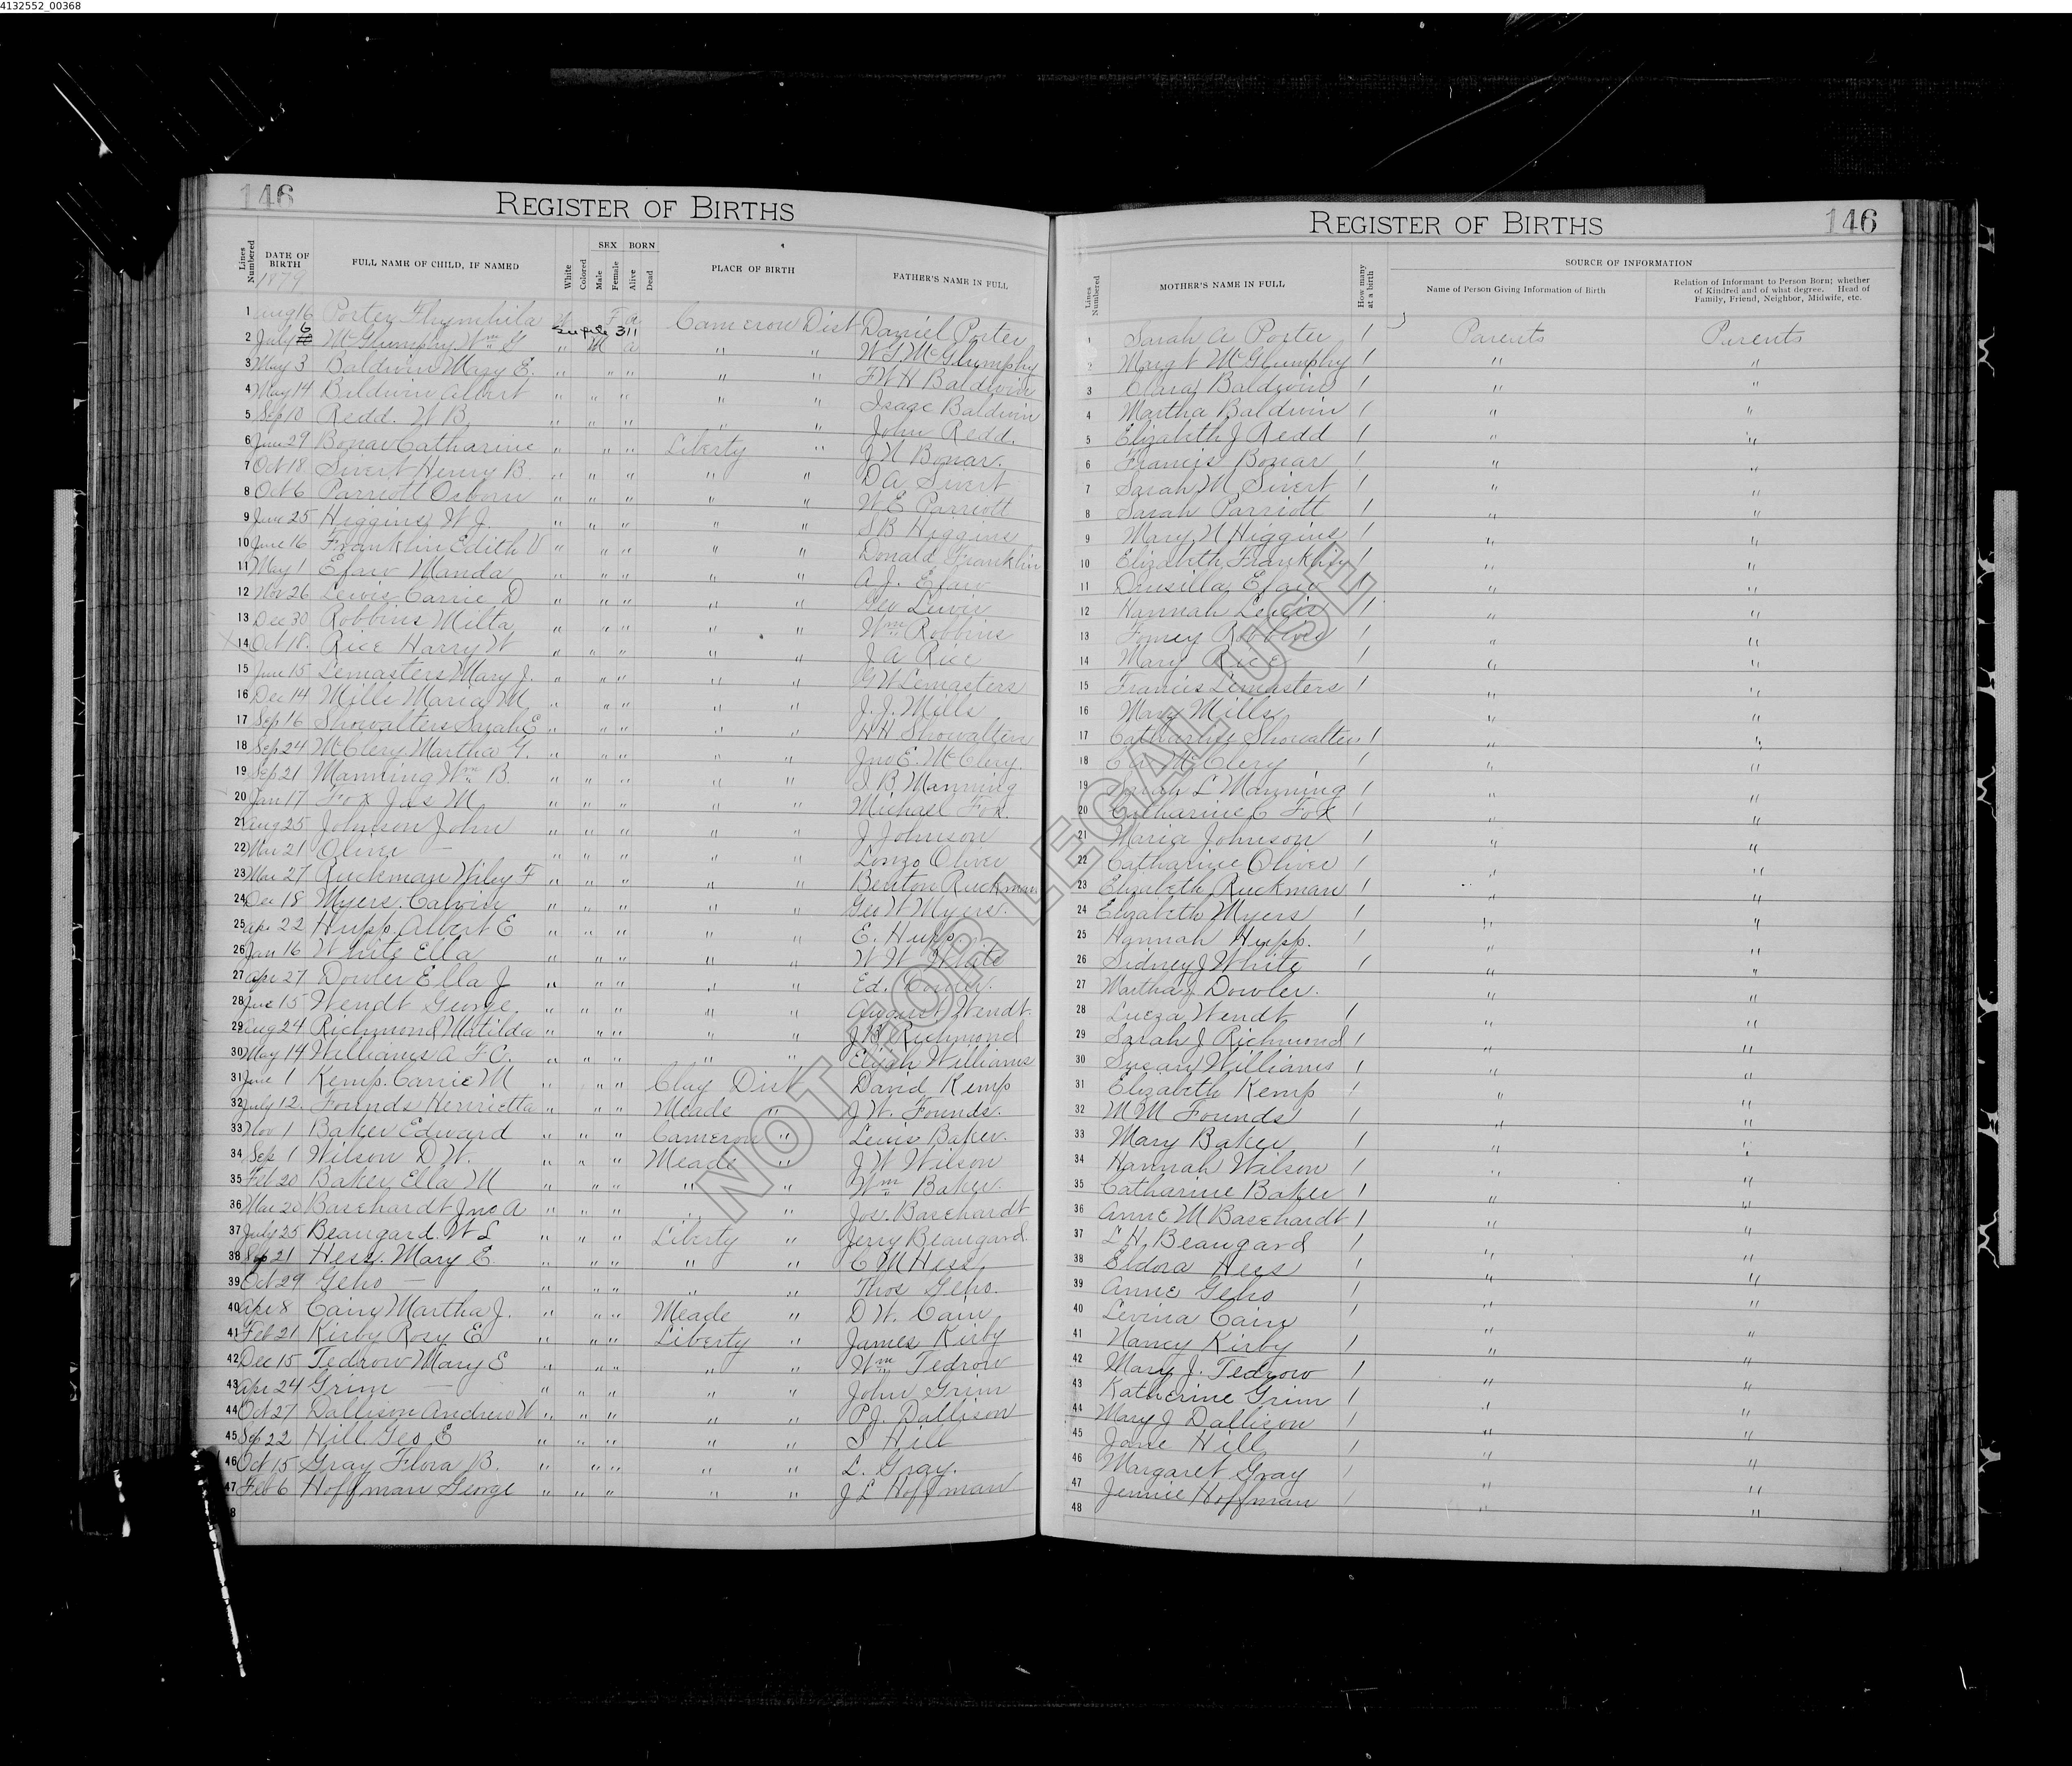 4132552_00368
146
REGISTER OF BIRTHS
Lines Numbered DATE OF BIRTH FULL NAME OF CHILD, IF NAMED White Colored SEX Male Female BORN Alive Dead PLACE OF BIRTH FATHER'S NAME IN FULL
1879
1 Aug 16 Porter W F a Cameron Dist Daniel Porter
See file 311
2 July 6 McGlumphy Wm S " M a " " W S McGlumphy
3 May 3 Baldwin Mary E. " " " " " F W H Baldwin
4 May 14 Baldwin Albert " " " " " Isaac Baldwin
5 Sep 10 Redd. W B. " " " " " John Redd.
6 June 29 Bonar Catharine " " " Liberty " J N Bonar.
7 Oct 18 Sivert Henry B. " " " " " D A Sivert
8 Oct 6 Parriott Osborn " " " " " W E Parriott
9 June 25 Higgins W J. " " " " " S B Higgins
10 June 16 Franklin Edith V " " " " " Donald Franklin
11 May 1 Efaw Manda " " " " " A. J. Efaw
12 Nov 26 Lewis Carrie D " " " " " Geo Lewis
13 Dec 30 Robbins Milta " " " " " Wm Robbins
14 Oct 18. Rice Harry W " " " " " J A Rice
15 June 15 Lemasters Mary J. " " " " " G W Lemasters
16 Dec 14 Mills Maria M. " " " " " J. J. Mills
17 Sep 16 Showalters Sarah E " " " " " H H Showalter
18 Sep 24 McClery Martha G. " " " " " Jno E. McClery.
19 Sep 21 Manning Wm B. " " " " " S B Manning
20 Jan 17 Fox Jas M " " " " " Michael Fox.
21 Aug 25 Johnson John " " " " " J Johnson
22 Mar 21 Oliver — " " " " " Lonzo Oliver
23 Mar 27 Ruckman Wiley F " " " " " Benton Ruckman
24 Dec 18 Myers. Calvin " " " " " Geo W Myers.
25 Apr 22 Hupp. Albert E " " " " " E. Hupp.
26 Jan 16 White Ella " " " " " W W White
27 Apr 27 Dowler Ella J " " " " " Ed. Dowler.
28 June 15 Wendt George " " " " " August Wendt.
29 Aug 24 Richmond Matilda " " " " " J B Richmond
30 May 14 Williams A F C. " " " " " Elijah Williams
31 June 1 Kemp. Carrie M " " " Clay Dist David Kemp
32 July 12. Founds Henrietta " " " Meade " J W. Founds.
33 Nov 1 Baker Edward " " " Cameron " Lewis Baker.
34 Sep 1 Wilson D W. " " " Meade " J W Wilson
35 Feb 20 Baker Ella M " " " " " Wm Baker.
36 Mar 20 Basehardt Jno A " " " " " Jos. Basehardt
37 July 25 Beaugard. W L " " " Liberty " Jerry Beaugard.
38 Sep 21 Hess. Mary E. " " " " " C M Hess
39 Oct 29 Geho — " " " " " Thos Geho.
40 Apr 8 Cain Martha J. " " " Meade " D W. Cain
41 Feb 21 Kirby Rosy E " " " Liberty " James Kirby
42 Dec 15 Tedrow Mary E " " " " " Wm Tedrow
43 Apr 24 Grim — " " " " " John Grim
44 Oct 27 Dallison Andrew W " " " " " P. J. Dallison
45 Sep 22 Hill. Geo E " " " " " S Hill
46 Oct 15 Gray Flora B. " " " " " L. Gray.
47 Feb 6 Hoffman George " " " " " J L Hoffman
8
REGISTER OF BIRTHS
146
Lines Numbered MOTHER'S NAME IN FULL How many at a birth SOURCE OF INFORMATION
Name of Person Giving Information of Birth Relation of Informant to Person Born; whether of Kindred and of what degree. Head of Family, Friend, Neighbor, Midwife, etc.
1 Sarah A Porter 1 Parents Parents
2 Margt McGlumphy 1 " "
3 Clara Baldwin 1 " "
4 Martha Baldwin 1 " "
5 Elizabeth J Redd 1 " "
6 Francis Bonar 1 " "
7 Sarah M Sivert 1 " "
8 Sarah Parriott 1 " "
9 Mary N Higgins 1 " "
10 Elizabeth Franklin 1 " "
11 Drusilla Efaw 1 " "
12 Hannah Lewis 1 " "
13 Robbins 1 " "
14 Mary Rice 1 " "
15 Francis Lemasters 1 " "
16 Mary Mills " "
17 Catharine Showalter 1 " "
18 McClery 1 " "
19 Sarah L Manning 1 " "
20 Catharine C Fox 1 " "
21 Maria Johnson 1 " "
22 Catharine Oliver 1 " "
23 Elizabeth Ruckman 1 " "
24 Elizabeth Myers 1 " "
25 Hannah Hupp. 1 " "
26 Sidney J White 1 " "
27 Martha J Dowler. " "
28 Lueza Wendt 1 " "
29 Sarah J Richmond 1 " "
30 Susan Williams 1 " "
31 Elizabeth Kemp 1 " "
32 M M Founds 1 " "
33 Mary Baker 1 " "
34 Hannah Wilson 1 " "
35 Catharine Baker 1 " "
36 Anne M Basehardt 1 " "
37 L H. Beaugard 1 " "
38 Eldora Hess 1 " "
39 Anne Geho 1 " "
40 Levina Cain " "
41 Nancy Kirby 1 " "
42 Mary J. Tedrow 1 " "
43 Katherine Grim 1 " "
44 Mary J Dallison 1 " "
45 Jane Hill 1 " "
46 Margaret Gray 1 " "
47 Jennie Hoffman 1 " "
48
NOT FOR LEGAL USE